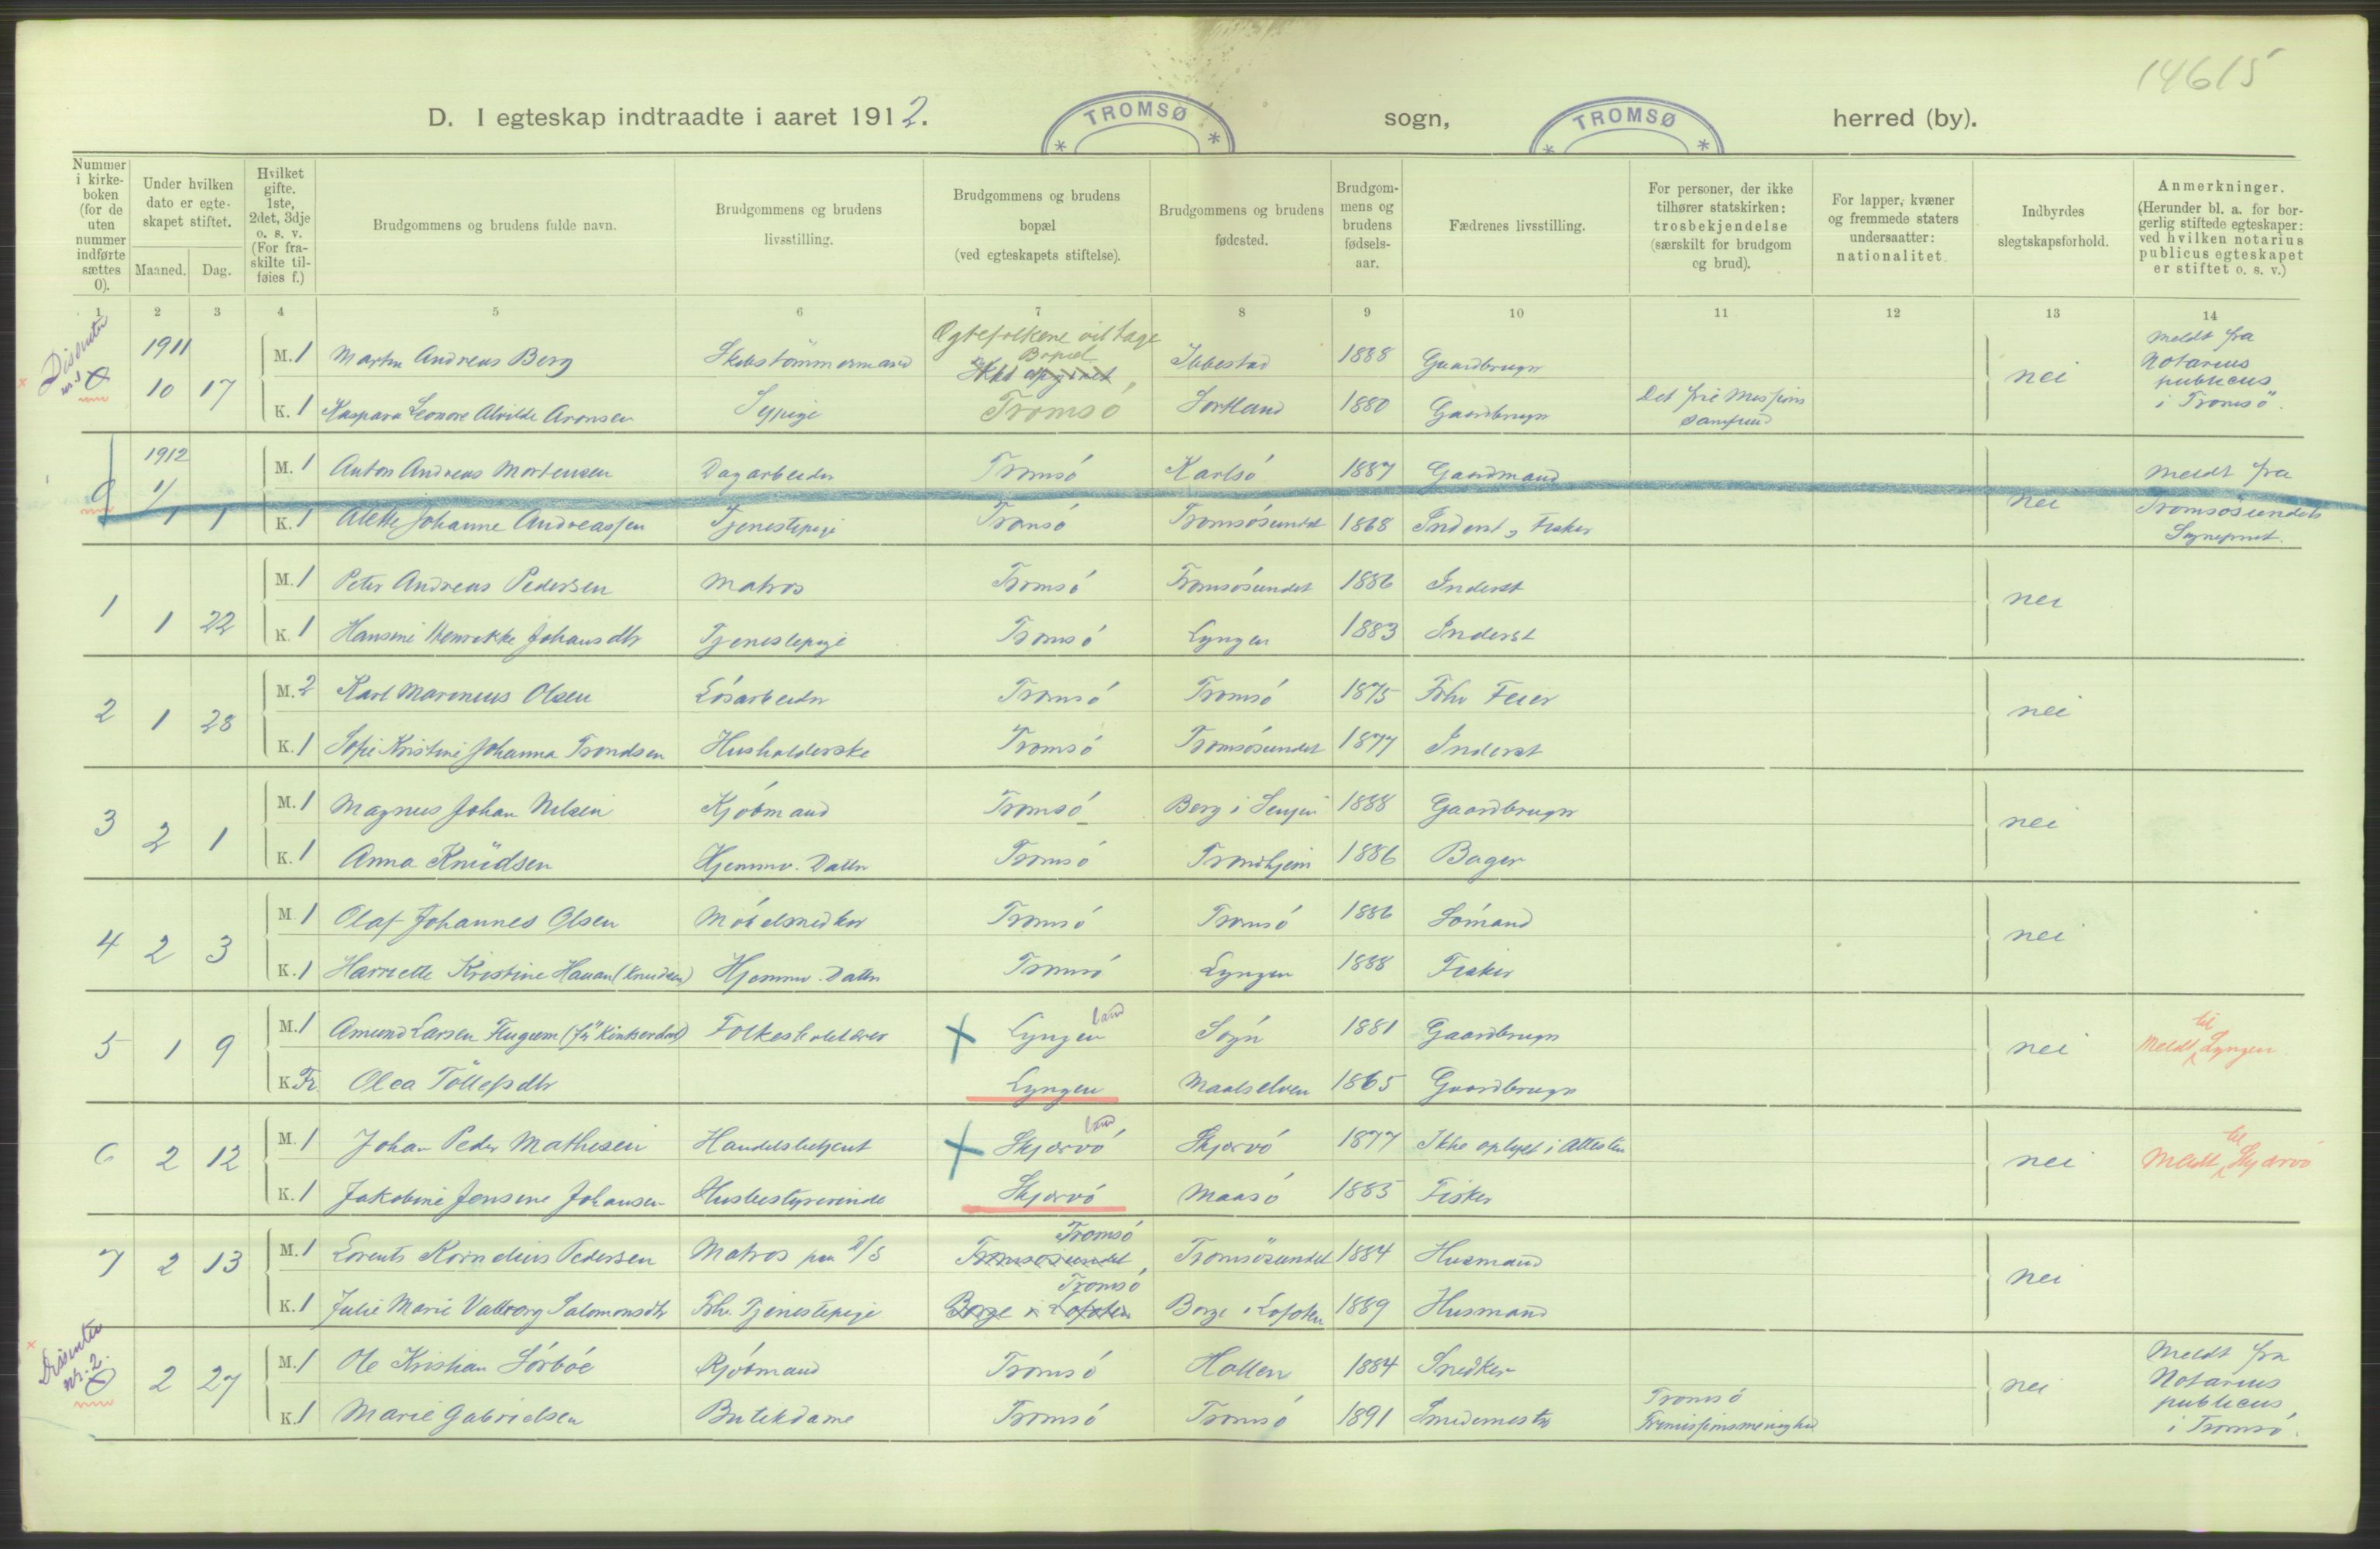 14615
D. I egteskap indtraadte i aaret 1912. TROMSØ sogn, TROMSØ herred (by).
Nummer i kirke-boken (for de uten nummer indførte sættes 0).
Under hvilken dato er egte-skapet stiftet.
Maaned. Dag.
Hvilket gifte. 1ste, 2det, 3dje o. s. v. (For fra-skilte til-føies f.)
Brudgommens og brudens fulde navn.
Brudgommens og brudens livsstilling.
Brudgommens og brudens bopæl (ved egteskapets stiftelse).
Brudgommens og brudens fødested.
Brudgom-mens og brudens fødsels-aar.
Fædrenes livsstilling.
For personer, der ikke tilhører statskirken: trosbekjendelse (særskilt for brudgom og brud).
For lapper, kvæner og fremmede staters undersaatter: nationalitet
Indbyrdes slegtskapsforhold.
Anmerkninger. (Herunder bl. a. for bor-gerlig stiftede egteskaper: ved hvilken notarius publicus egteskapet er stiftet o. s. v.)
1 2 3 4 5 6 7 8 9 10 11 12 13 14
Disenter nr. 1 0 1911 10 17
Ægtefolkene vil tage Bopæl
M. 1 Martin Andreas Berg Skibstömmermand Ikke opgivet Ibbestad 1888 Gaardbruger nei Meldt fra Notarius publicus i Tromsö.
K. 1 Kaspara Leonore Alvilde Aronsen Sypige Tromsö Sortland 1880 Gaardbruger Det frie Missions samfund
0 1912 1 1
M. 1 Anton Andreas Mortensen Dagarbeider Tromsö Karlsö 1887 Gaardmand nei Meldt fra
K. 1 Alette Johanne Andreassen Tjenestepige Tromsö Tromsösundet 1868 Inderst, Fisker Tromsösundets Sogneprest.
1 1 22
M. 1 Peter Andreas Pedersen Matros Tromsö Tromsösundet 1886 Inderst nei
K. 1 Hansine Henrikke Johansdtr Tjenestepige Tromsö Lyngen 1883 Inderst
2 1 28
M. 2 Karl Marenius Olsen Lösarbeider Tromsö Tromsö 1875 Fhv Feier nei
K. 1 Sofie Kristine Johanna Trondsen Husholderske Tromsö Tromsösundet 1877 Inderst
3 2 1
M. 1 Magnus Johan Nilsen Kjöbmand Tromsö Berg i Senjen 1888 Gaardbruger nei
K. 1 Anna Knudsen Hjemmv. Datter Tromsö Trondhjem 1886 Bager
4 2 3
M. 1 Olaf Johannes Olsen Möbelsnedker Tromsö Tromsö 1886 Sömand nei
K. 1 Harriette Kristine Hauan (Knudsen) Hjemmv. Datter Tromsö Lyngen 1888 Fisker
5 1 9
M. 1 Amund Larsen Flugum Folkeskolelærer Lyngen land Sogn 1881 Gaardbruger nei Meldt til Lyngen
K. Fr. Olea Töllefsdtr Lyngen Maalselven 1865 Gaardbruger
6 2 12
M. 1 Johan Peder Mathisen Handelsbetjent Skjervö land Skjervö 1877 Ikke oplyst i Attesten nei Meldt til Skjærvö
K. 1 Jakobine Jensine Johansen Husbestyrerinde Skjervö Maasö 1885 Fisker
7 2 13
M. 1 Lorents Kornelius Pedersen Matros paa D/S Tromsösundet Tromsö Tromsösundet 1884 Husmand nei
K. 1 Julie Marie Valborg Salomonsdtr Fhv. Tjenestepige Borge i Lofoten Tromsö Borge i Lofoten 1889 Husmand
Dissenter nr. 2. 0 2 27
M. 1 Ole Kristian Sörböe Kjöbmand Tromsö Hollen 1884 Snedker nei Meldt fra Notarius publicus i Tromsö.
K. 1 Marie Gabrielsen Butikdame Tromsö Tromsö 1891 Smedemester Tromsö Frimissionsmenighed